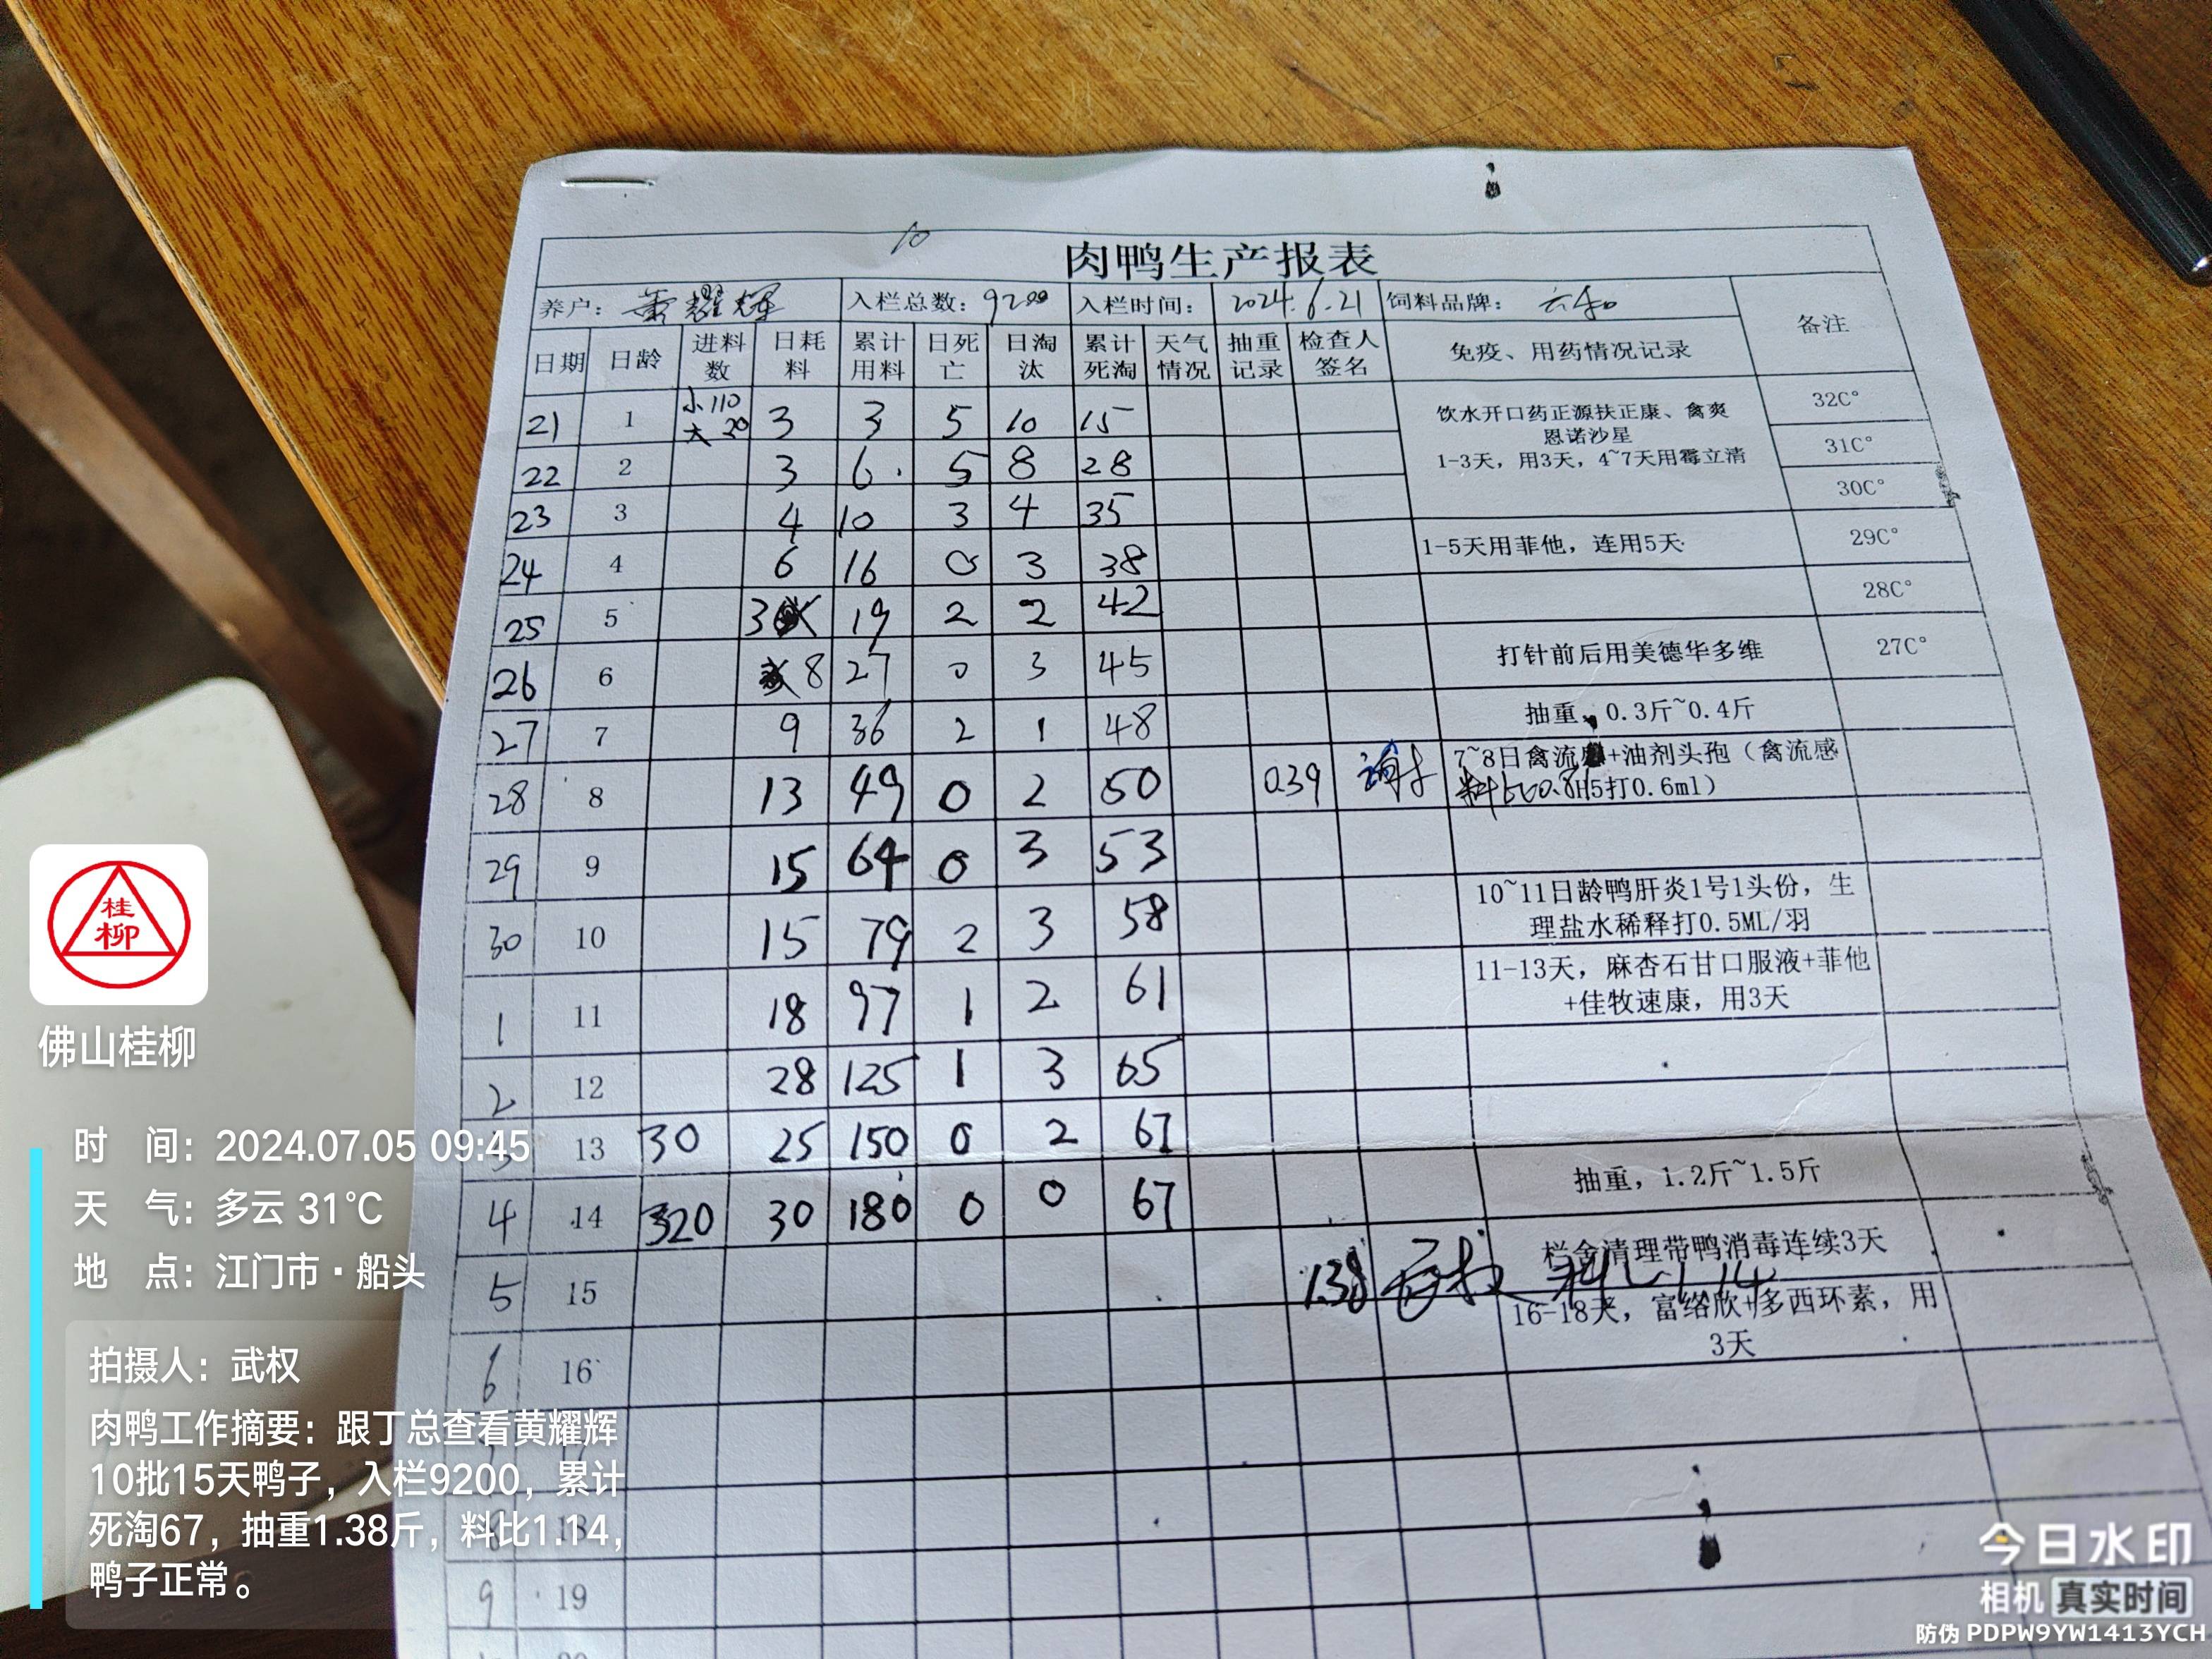 10
肉鸭生产报表
养户：黄耀辉 入栏总数：9200 入栏时间：2024.6.21 饲料品牌：
日期 日龄 进料数 日耗料 累计用料 日死亡 日淘汰 累计死淘 天气情况 抽重记录 检查人签名 免疫、用药情况记录 备注
21 1 小110 大20 3 3 5 10 15 饮水开口药正源扶正康、禽爽 32C°
恩诺沙星
22 2 3 6 5 8 28 1-3天，用3天，4~7天用霉立清 31C°
23 3 4 10 3 4 35 30C°
24 4 6 16 0 3 38 1-5天用菲他，连用5天 29C°
25 5 3 19 2 2 42 28C°
26 6 8 27 0 3 45 打针前后用美德华多维 27C°
27 7 9 36 2 1 48 抽重，0.3斤~0.4斤
28 8 13 49 0 2 50 0.39 7~8日禽流感+油剂头孢（禽流感
料比0.8 H5打0.6ml）
29 9 15 64 0 3 53
30 10 15 79 2 3 58 10~11日龄鸭肝炎1号1头份，生
理盐水稀释打0.5ML/羽
1 11 18 97 1 2 61 11-13天，麻杏石甘口服液+菲他
+佳牧速康，用3天
2 12 28 125 1 3 65
3 13 30 25 150 0 2 67
4 14 320 30 180 0 0 67 抽重，1.2斤~1.5斤
栏舍清理带鸭消毒连续3天
5 15 1.38 武权 料比1.14
16-18天，富络欣+多西环素，用
3天
6 16
17
18
9 19
20
桂柳
佛山桂柳
时 间：2024.07.05 09:45
天 气：多云 31℃
地 点：江门市·船头
拍摄人：武权
肉鸭工作摘要：跟丁总查看黄耀辉
10批15天鸭子，入栏9200，累计
死淘67，抽重1.38斤，料比1.14，
鸭子正常。
今日水印
相机 真实时间
防伪 PDPW9YW1413YCH